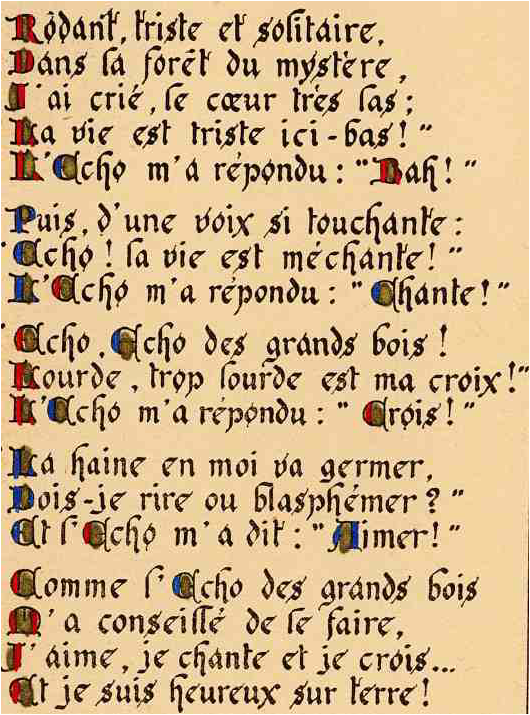 Rôdant, triste et solitaire,
Dans la forêt du mystère,
J'ai crié, le cœur très las;
La vie est triste ici-bas!"
L'Echo m'a répondu: "Bah!"
Puis, d'une voix si touchante:
Echo! la vie est méchante!"
L'Echo m'a répondu: "Chante!"
Echo, Echo des grands bois!
Lourde, trop lourde est ma croix!"
L'Echo m'a répondu: "Crois!"
La haine en moi va germer,
Dois-je rire ou blasphémer?"
Et l'Echo m'a dit: "Aimer!"
Comme l'Echo des grands bois
M'a conseillé de le faire,
J'aime, je chante et je crois...
Et je suis heureux sur terre!